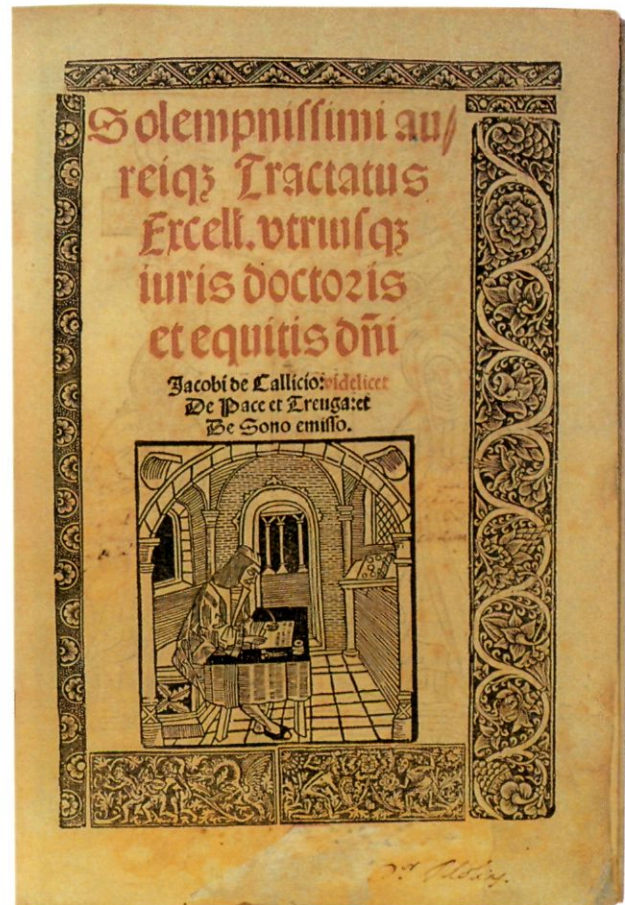 Solempnissimi au//
reiqꝫ Tractatus
Excell. vtriusqꝫ
iuris doctoris
et equitis dñi
Jacobi de Callicio: videlicet
De Pace et Treuga: et
De Sono emisso.